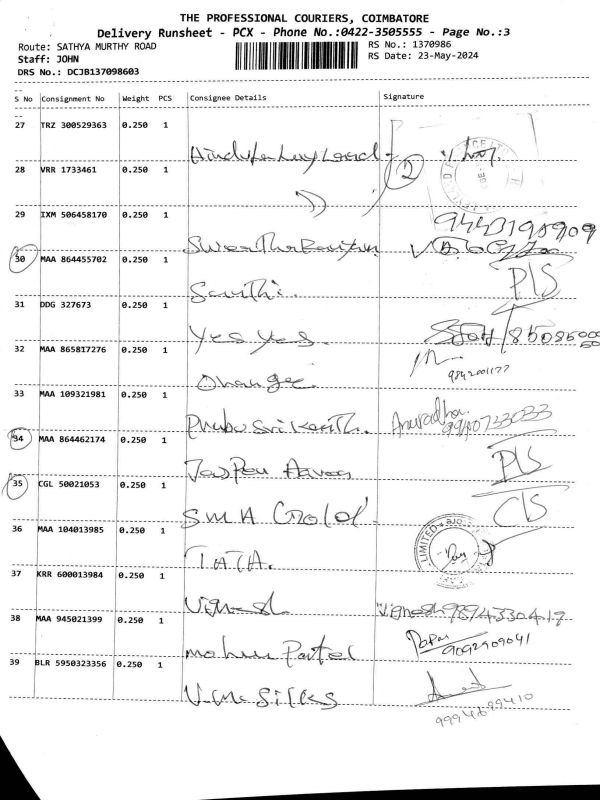 THE PROFESSIONAL COURIERS, COIMBATORE
Delivery Runsheet - PCX - Phone No.:0422-3505555 - Page No.:3
Route: SATHYA MURTHY ROAD
RS No.: 1370986
Staff: JOHN
RS Date: 23-May-2024
DRS No.: DCJB137098603
S No Consignment No Weight PCS Consignee Details Signature
27 TRZ 300529363 0.250 1
2
28 VRR 1733461 0.250 1
29 IXM 506458170 0.250 1
30 MAA 864455702 0.250 1
Santhi. P/S
31 DDG 327673 0.250 1
Yes yes.
32 MAA 865817276 0.250 1
9842001177
33 MAA 109321981 0.250 1
Anuradha
34 MAA 864462174 0.250 1
P/S
35 CGL 50021053 0.250 1
SMA Gold C/S
36 MAA 104013985 0.250 1
TATA. LIMITED
37 KRR 600013984 0.250 1
Vignesh Vignesh 9894330419
38 MAA 945021399 0.250 1
mohan Patel 9092909041
39 BLR 5950323356 0.250 1
V.M. Silks
9994699410